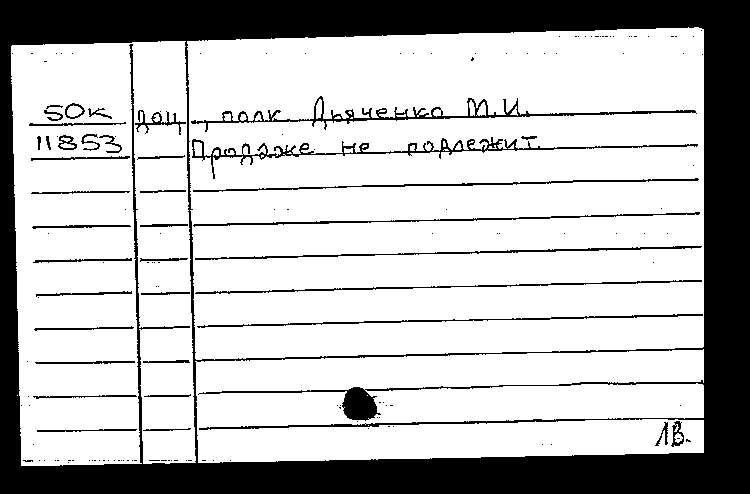 50к доц., полк. Дьяченко М.И.
11853 Продаже не подлежит.
ЛВ.